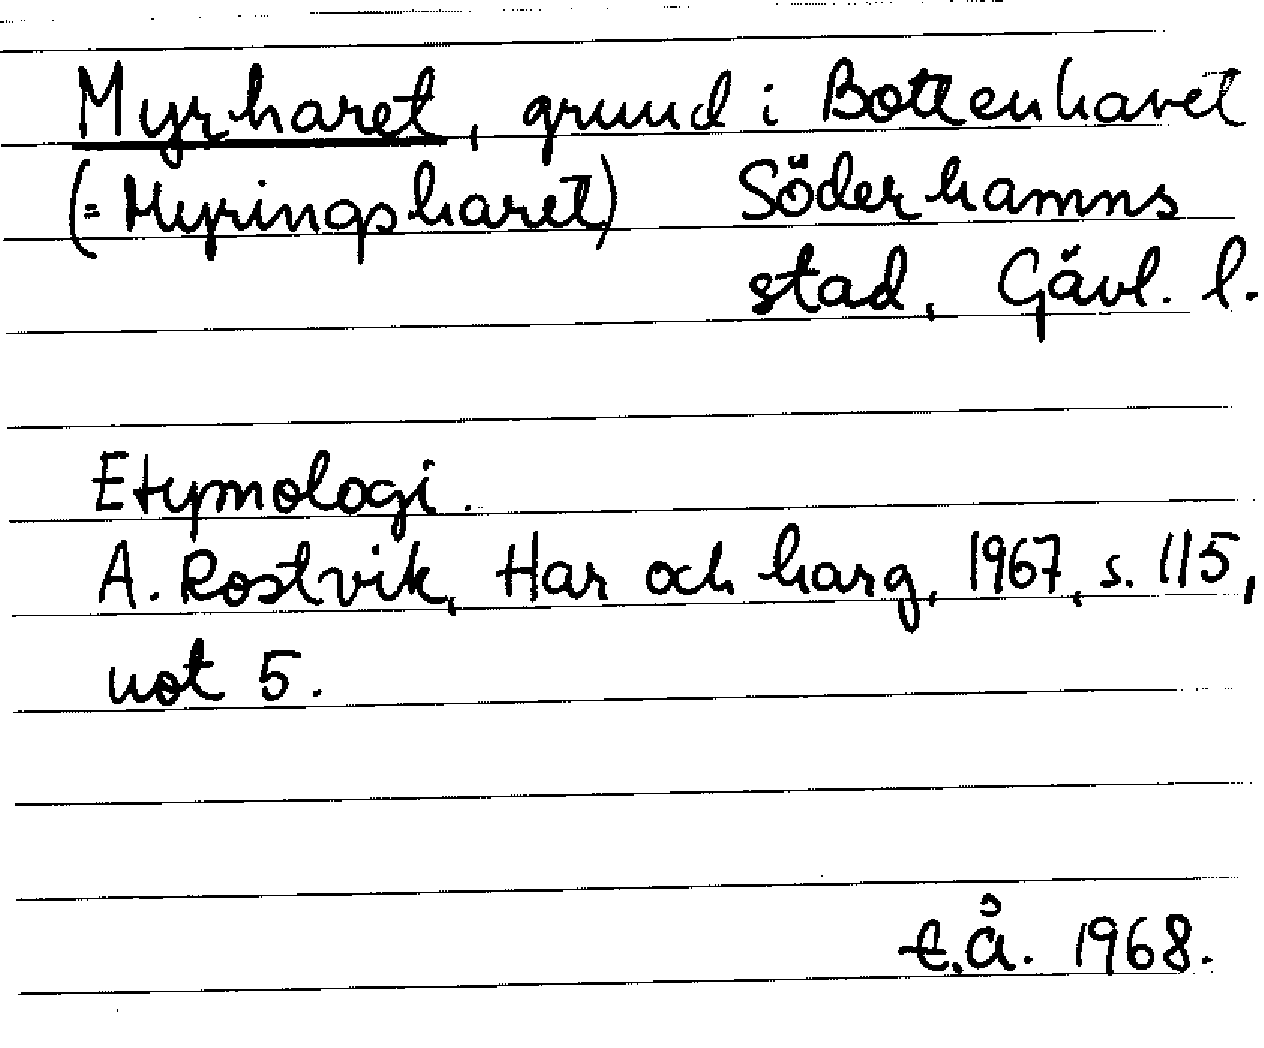 Myrharet, grund i Bottenhavet
(= Myringsharet) Söderhamns
stad, Gävl. l.
Etymologi.
A. Rostvik, Har och harg, 1967, s. 115,
not 5.
t.å. 1968.